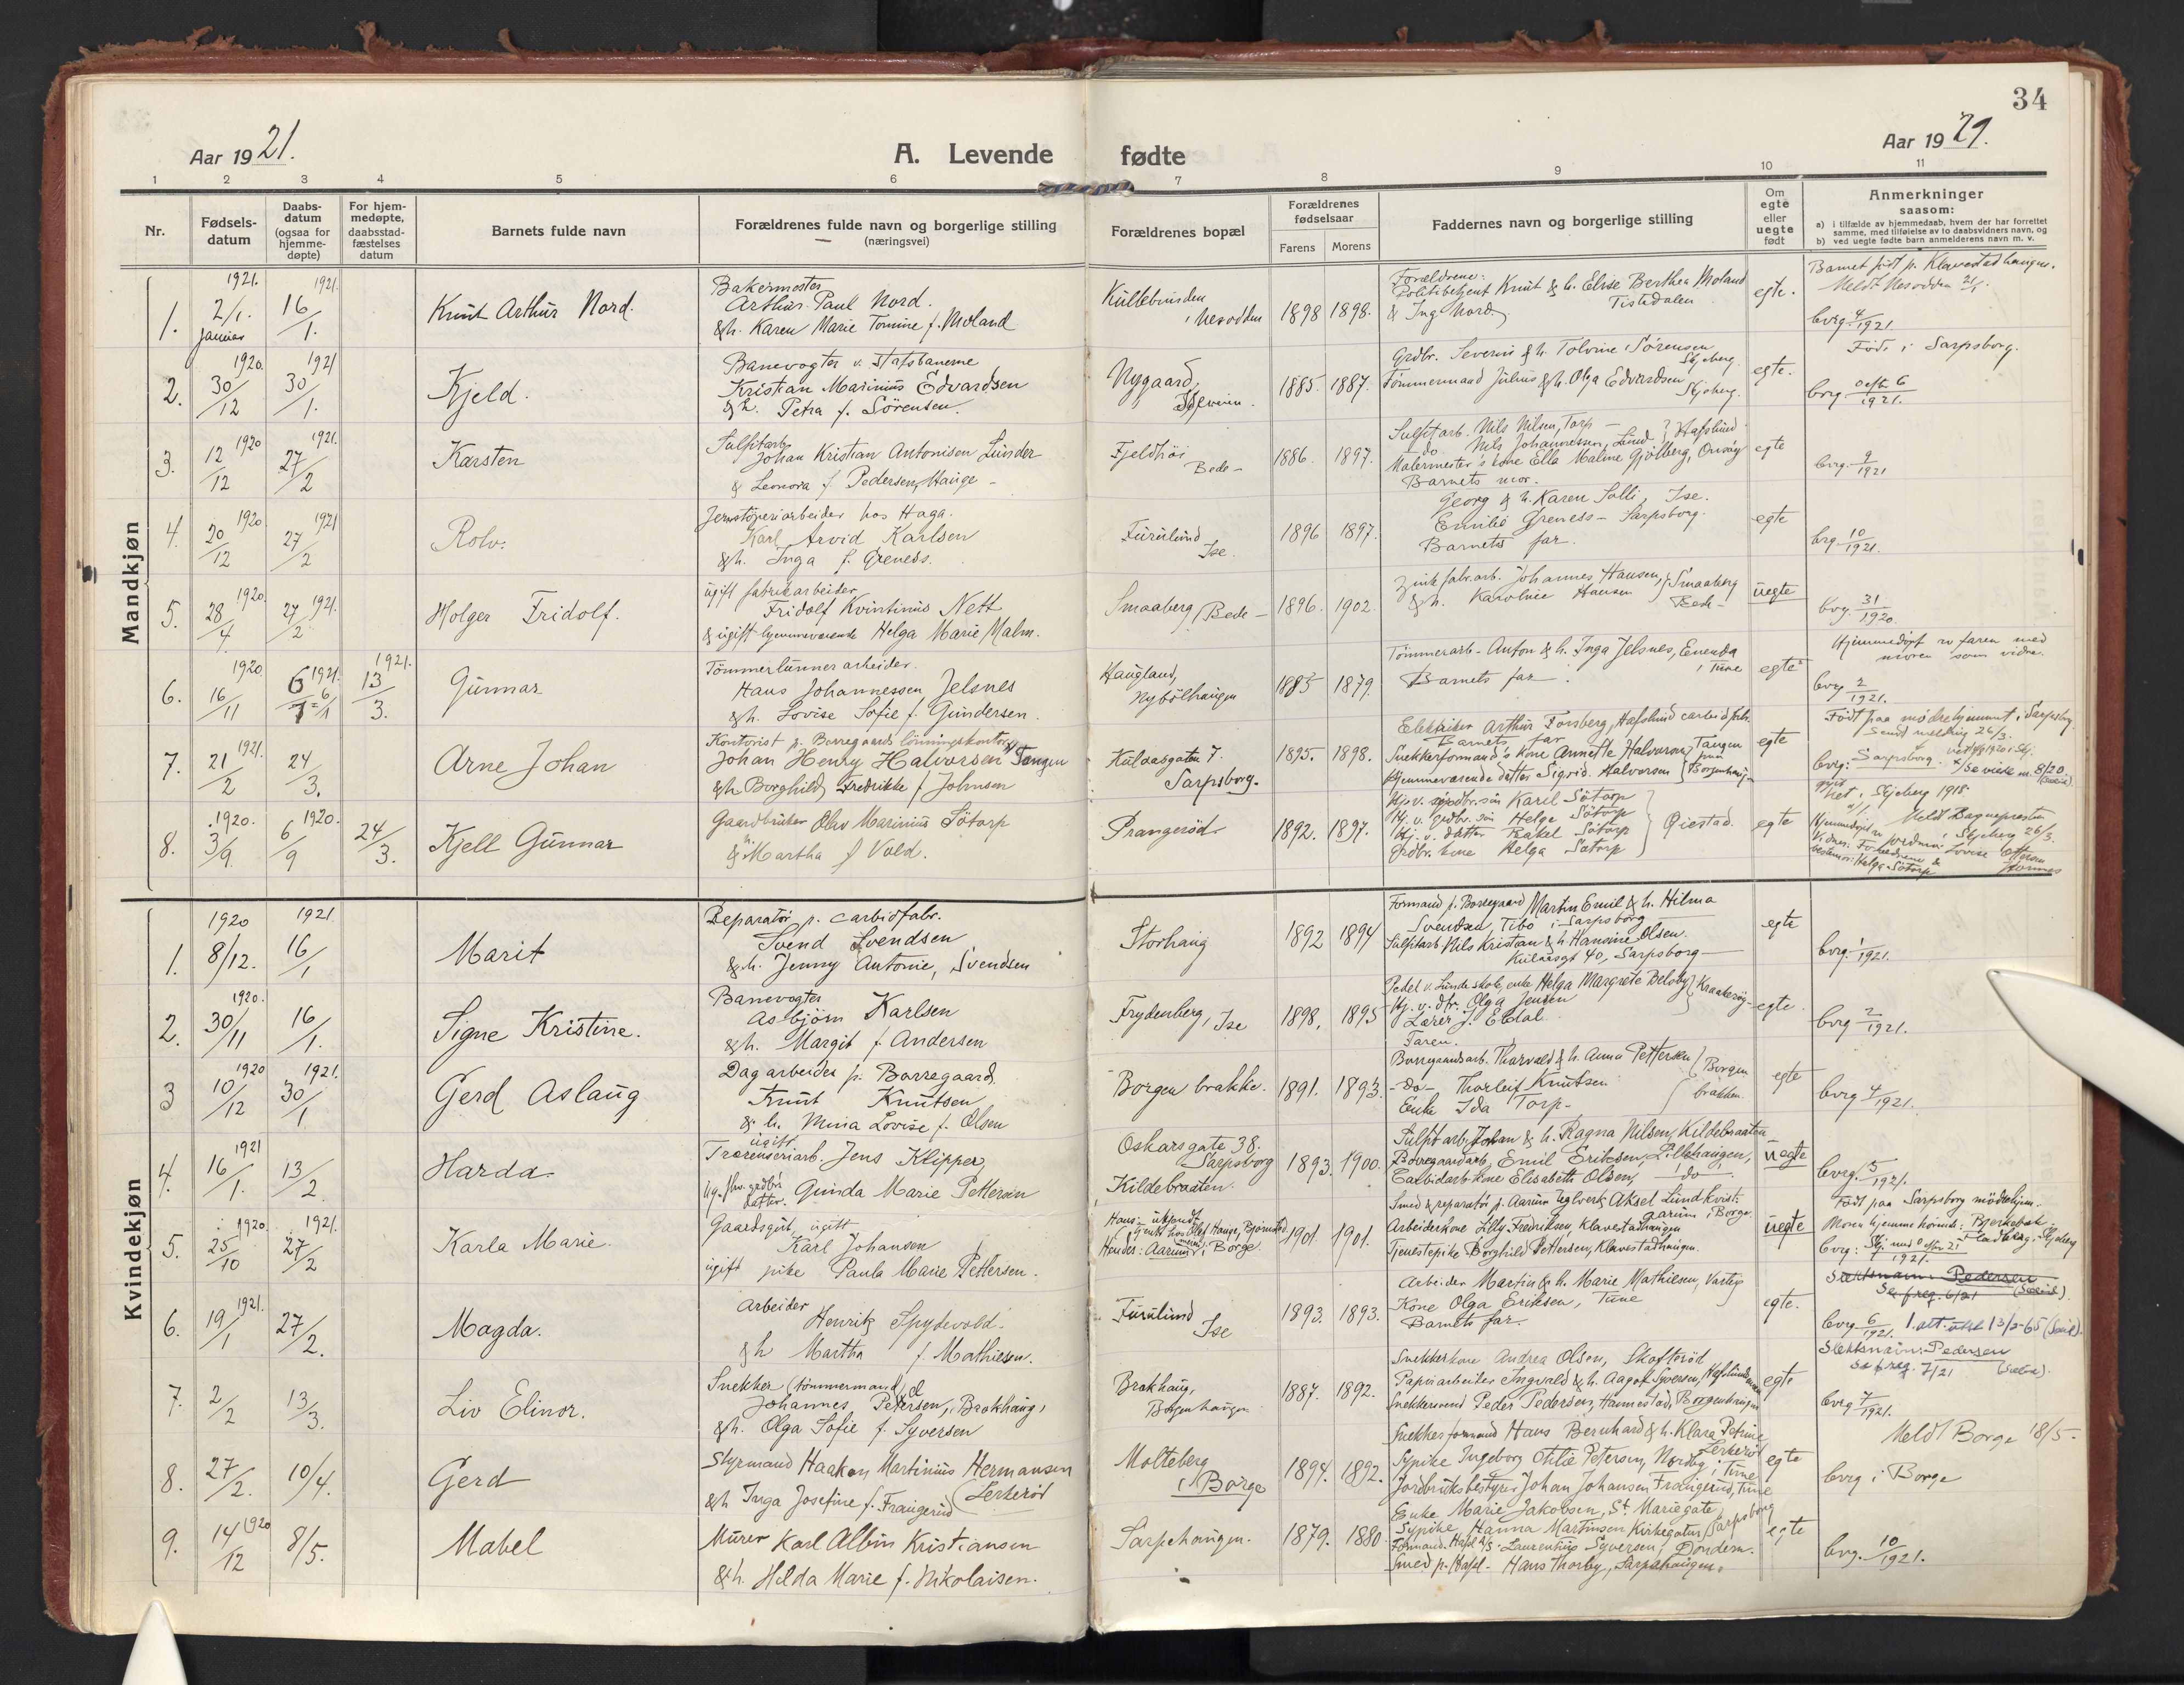 34
Aar 1921.
A. Levende fødte
Aar 1921.
1 2 3 4 5 6 7 8 9 10 11
Nr.
Fødsels-datum
Daabs-datum (ogsaa for hjemme-døpte)
For hjem-medøpte, daabsstad-fæstelses datum
Barnets fulde navn
Forældrenes fulde navn og borgerlige stilling
(næringsvei)
Forældrenes bopæl
Forældrenes fødselsaar
Farens Morens
Faddernes navn og borgerlige stilling
Om egte eller uegte født
Anmerkninger
saasom:
a) i tilfælde av hjemmedaab, hvem der har forrettet samme, med tilføielse av to daabsvidners navn, og
b) ved uegte fødte barn anmelderens navn m. v.
Mandkjøn
1. 1921. 2/1. Januar 1921. 16/1. Knut Arthur Nord.
Bakermester
Arthur Paul Nord.
& h. Karen Marie Tomine f. Moland
Nesodden 1898 1898.
Forældrene:
Politibetjent Knut & h. Elise Berthea Moland
& Ing. Nord Tistedalen
egte.
Barnet født p. Klavestadhaugen.
Meldt Nesodden 21/1.
bvrg. 4/1921.
2. 1920. 30/12 1921 30/1. Kjeld.
Banevogter v. Statsbanerne
Kristian Marinius Edvardsen
& h. Petra f. Sörensen.
Nygaard, 1885. 1887.
Grdbr. Severin & h. Tolvine Sörensen Skjeberg.
Tömmermand Julius & h. Olga Edvardsen Skjeberg.
egte.
Födt i Sarpsborg.
3. 12/12 1920 1921. 27/2 Karsten
Sulfitarb.
Johan Kristian Antonisen Lunder
& Leonora f. Pedersen, Hauge -
Fjeldhöi
Bede - 1886. 1897.
Sulfitarb. Nils Nilsen, Torp -
do Nils Johannessen, Lund } Hafslund
Malermester's kone Ella Maline Gjölberg, Onsöy
Barnets mor.
egte
bvrg. 9/1921
4. 20/12 1920 1921 27/2 Rolv.
Jernstöperiarbeider hos Haga.
Karl Arvid Karlsen
& h. Inga f. Greness.
Furulund
Ise. 1896 1897.
Georg & h. Karen Solli, Ise.
Emilie Greness - Sarpsborg.
Barnets far.
egte
bvrg. 10/1921.
5. 28/4. 1920. 27/2 1921. Holger Fridolf.
ugift fabrikarbeider
Fridolf Kvintinus Nett
& ugift hjemmeværende Helga Marie Malm.
Smaaberg, Bede - 1896. 1902.
Zinkfabr.arb. Johannes Hansen,
& h. Karoline Hansen } Smaaberg
Bede -
uegte
bvrg. 31/1920.
6. 1920. 16/11 6/1 1921. 1921. 13/3. Gunnar
Tömmerlunner arbeider.
Hans Johannessen Jelsnes
& h. Lovise Sofie f. Gundersen.
Haugland,
Nybölhaugen 1885 1879.
Tömmerarb. Anton & h. Inga Jelsnes, Enenda
i Tune
Barnets far.
egte
Hjemmedöpt av faren med
moren som vidne.
bvrg 2/1921.
7. 21/2 1921. 24/3. Arne Johan
Kontorist p. Borregaards lönningskontor
Johan Henry Halvorsen Tangen
& h. Borghild Fredrikke f. Johnsen
Kulaasgaten 7.
Sarpsborg. 1895. 1898.
Elektriker Arthur Forsberg, Hafslund carbidfabr.
Barnets far
Snekkerformand's kone Annette Halvorsen
Hjemmeværende datter Sigrid Halvorsen } Tangen
Borgenhaug
egte
Födt paa mödrehjemmet i Sarpsborg.
Sendt melding 26/3.
bvrg: Sarpsborg.
8. 1920. 3/9. 1920. 6/9 24/3. Kjell Gunnar
Gaardbruker Olav Marinius Sötorp
& h. Martha f. Vold.
Prangeröd. 1892. 1897.
Hj. v. grdbr. sön Karel Sötorp
Hj. v. grdbr. sön Helge Sötorp
Hj. v. datter Rakel Sötorp
Grdbr. kone Helga Sötorp } Öiestad.
egte
i Skjeberg 1918.
i Skjeberg 26/3.
Kvindekjøn
1. 1920 8/12. 1921. 16/1 Marit
Reparatör p. carbidfabr.
Svend Svendsen
& h. Jenny Antonie, Svendsen
Storhaug 1892 1894
Formand p. Borregaard Martin Emil & h. Hilma
Svendsen, Tibo i Sarpsborg
Sulfitarb Nils Kristian & h. Hansine Olsen.
Kulaasgt 40, Sarpsborg
egte
bvrg. 1/1921.
2. 1920. 30/11 16/1. Signe Kristine.
Banevogter
Asbjörn Karlsen
& h. Margit f. Andersen
Frydenberg, Ise 1898. 1895
Hj. v. dtr. Olga Jensen
Lærer J. Eldal
Faren.
egte
bvrg 2/1921.
3 1920 10/12 1921. 30/1 Gerd Aslaug
Dagarbeider p. Borregaard.
Knut Knutsen
& h. Mina Lovise f. Olsen
Borgen brakke. 1891. 1893.
Borregaardsarb. Thorvald & h. Anna Pettersen
- do - Thorleif Knutsen
Enke Ida Torp - } Borgen
brakken.
egte
bvrg 4/1921.
4. 1921 16/1. 13/2 Harda
ugift
Jens Klipper,
Gunda Marie Pettersen
Oskarsgate 38.
Sarpsborg
Kildebraaten. 1893. 1900.
Sulfitarb. Johan & h. Ragna Nilsen, Kildebraaten
Borregaardarb. Emil Eriksen, Lillehaugen,
Carbidarb. kone Elisabeth Olsen, do
uegte
bvrg. 5/1921.
5. 1920. 25/10 1921. 27/2 Karla Marie.
Gaardsgut, ugift
Karl Johansen
ugift pike Paula Marie Pettersen.
Hendes: Aarum i Borge 1901. 1901.
Smed & reparatör p. Aarum teglverk Aksel Lundkvist:
Aarum i Borge
Arbeiderkone Lilly Fredriksen, Klavestadhaugen
Tjenestepike Borghild Pettersen, Klavestadhaugen.
uegte
Födt paa Sarpsborg mödrehjem.
6. 19/1 1921. 27/2. Magda.
Arbeider
Henrik Spydevold.
& h Martha f. Mathiesen.
Furulund
Ise 1893. 1893.
Arbeider Martin & h. Marie Mathiesen,
Kone Olga Eriksen, Tune
Barnets far.
egte.
Slektsnavn: Pedersen
bvrg 6/1921.
7. 2/2 13/3. Liv Elinor.
Snekker (tömmermand)
Johannes Petersen, Brakhaug,
& h. Olga Sofie f. Syversen
Brakhaug,
Borgenhaugen 1887. 1892.
Snekkerkone Andrea Olsen, Skofteröd
Papirarbeider Ingvald & h. Aagot Syversen,
Snekkersvend Peder Pedersen, Hannestad, Borgenhaugen
egte
Slektsnavn: Pedersen
Se freg. 7/21
bvrg 7/1921.
8. 27/2. 10/4. Gerd
Styrmand Haakon Martinius Hermansen
& h Inga Josefine f. Frangerud (Lerkeröd
Molteberg
i Borge 1894. 1892.
Snekkerformand Hans Bernhard & h. Klara Petrine
Lerkeröd
Sypike Ingeborg Othilie Petersen, Nordby i Tune
Jordbruksbestyrer Johan Johansen Frangerud, Tune
egte
Meldt Borge 18/5.
bvrg i Borge
9. 14/12 1920 8/5. Mabel
Murer Karl Albin Kristiansen
& h. Hilda Marie f. Nikolaisen.
Sarpehaugen. 1879. 1880
Enke Marie Jakobsen, St. Mariegate,
Sypike Hanna Martinsen Kirkegaten, Sarpsborg
Smed p. Hafsl. Hans Thorby, Sarpehaugen.
egte
bvrg. 10/1921.